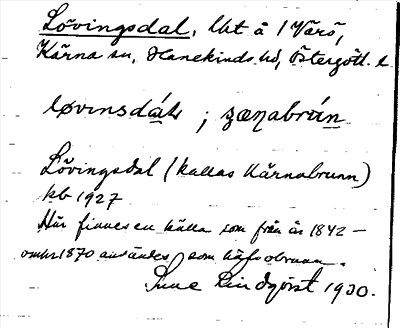 Lövingsdal, lht å 1 Värö,
Kärna sn, Hanekinds hd, Östergötl. l.
løvinsdáls ; zæɳabrún
Lövingsdal (kallas Kärnabrunn)
kb 1927
Här finnes en källa som från år 1842 –
omkr. 1870 användes som hälsobrunn.
Sune Lindqvist 1930.